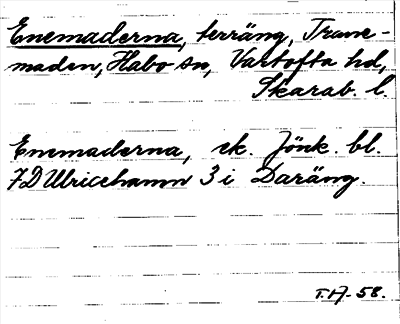 Enemaderna, terräng, Trane-
maden, Habo sn, Vartofta hd,
Skarab. l.
Enemaderna, ek. Jönk. bl.
7D Ulricehamn 3 i Daräng.
T.H. 58.